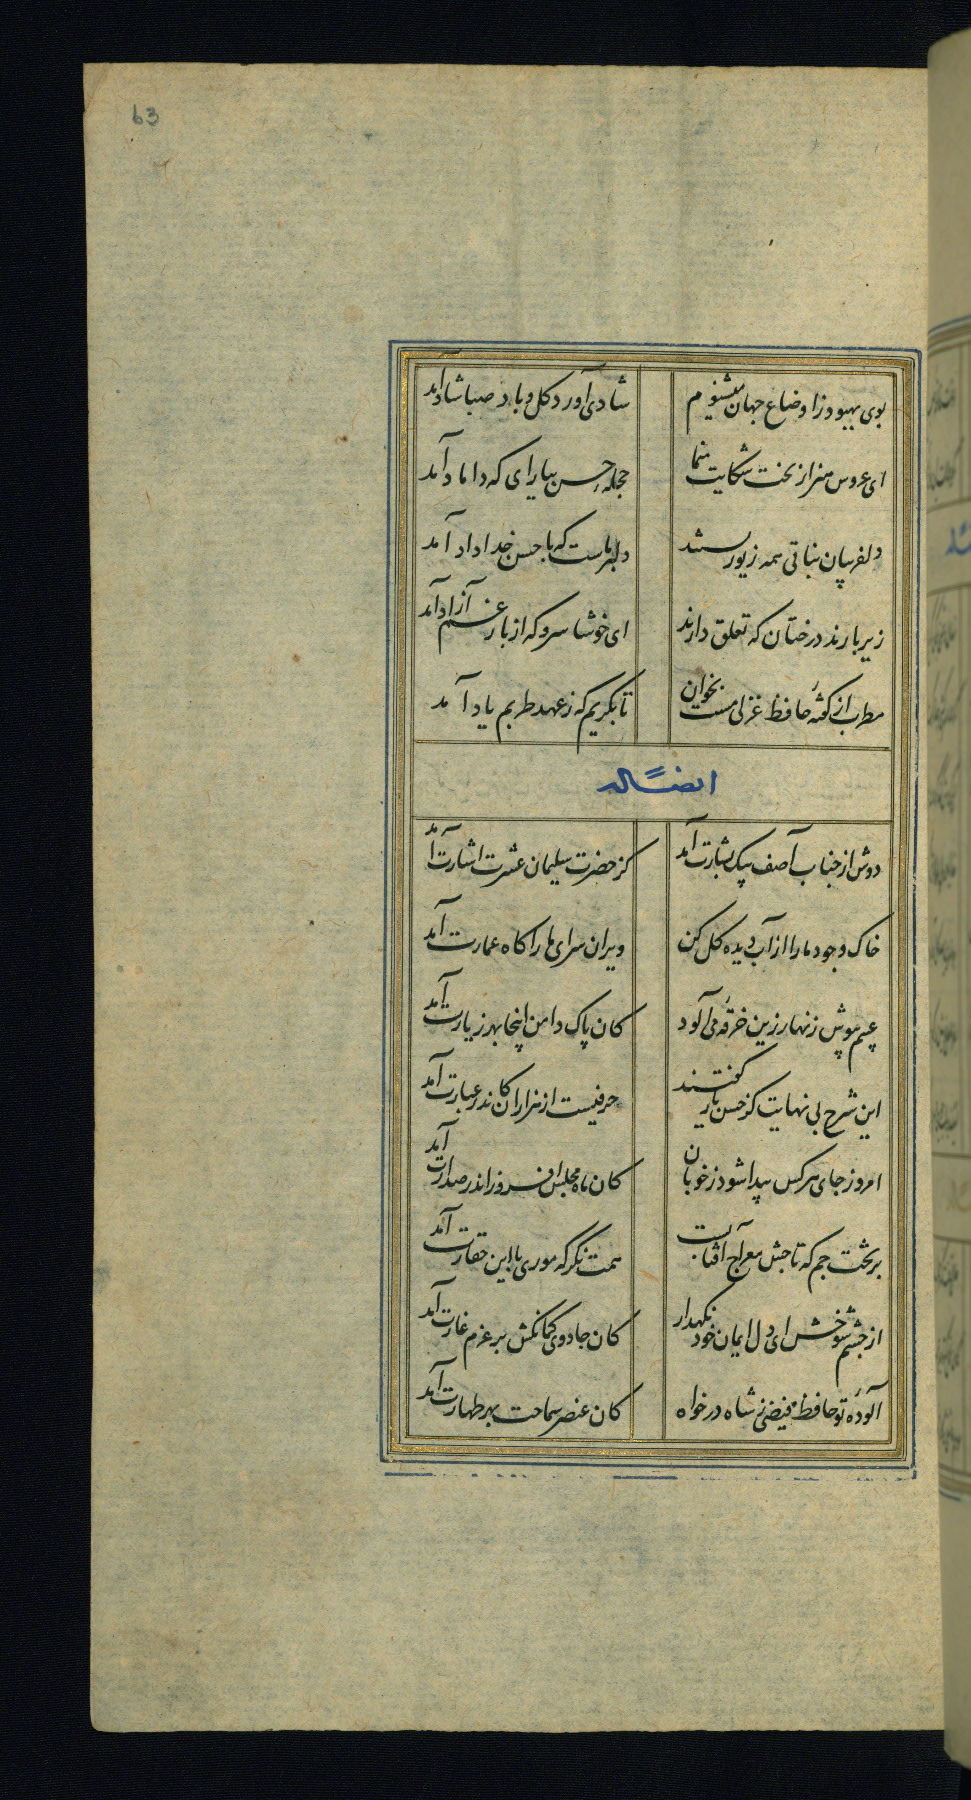 63
بوی بهبود ز اوضاع جهان میشنوم شادی آورد کل و باد صبا شاد آمد
ای عروس هنر از بخت شکایت منما حجلهٔ حسن بیارای که داماد آمد
دلفریبان نباتی همه زیور بستند دلبر ماست که با حسن خداداد آمد
زیر بارند درختان که تعلق دارند ای خوشا سرو که از بار غم آزاد آمد
مطرب از کفتهٔ حافظ غزلی مست بخوان تا بکریم که ز عهد طربم یاد آمد
ایضاً له
دوش از جناب آصف پیک بشارت آمد کز حضرت سلیمان عشرت اشارت آمد
خاک وجود ما را از آب دیده کل کن ویران سرای ما را کاه عمارت آمد
عیبم مپوش زنهار زین خرقهٔ می آلود کان پاک دامن اینجا بهر زیارت آمد
این شرح بی نهایت کز حسن یار کفتند حرفیست از هزاران کاندر عبارت آمد
امروز جای هر کس پیدا شود ز خوبان کان ماه مجلس افروز اندر صدارت آمد
بر تخت جم که تاجش معراج آفتابست همت نکر که موری با این حقارت آمد
از چشم شوخش ای دل ایمان خود نکهدار کان جادوی کمانکش بر عزم غارت آمد
آلودهٔ تو حافظ فیضی ز شاه در خواه کان عنصر سماحت بهر طهارت آمد